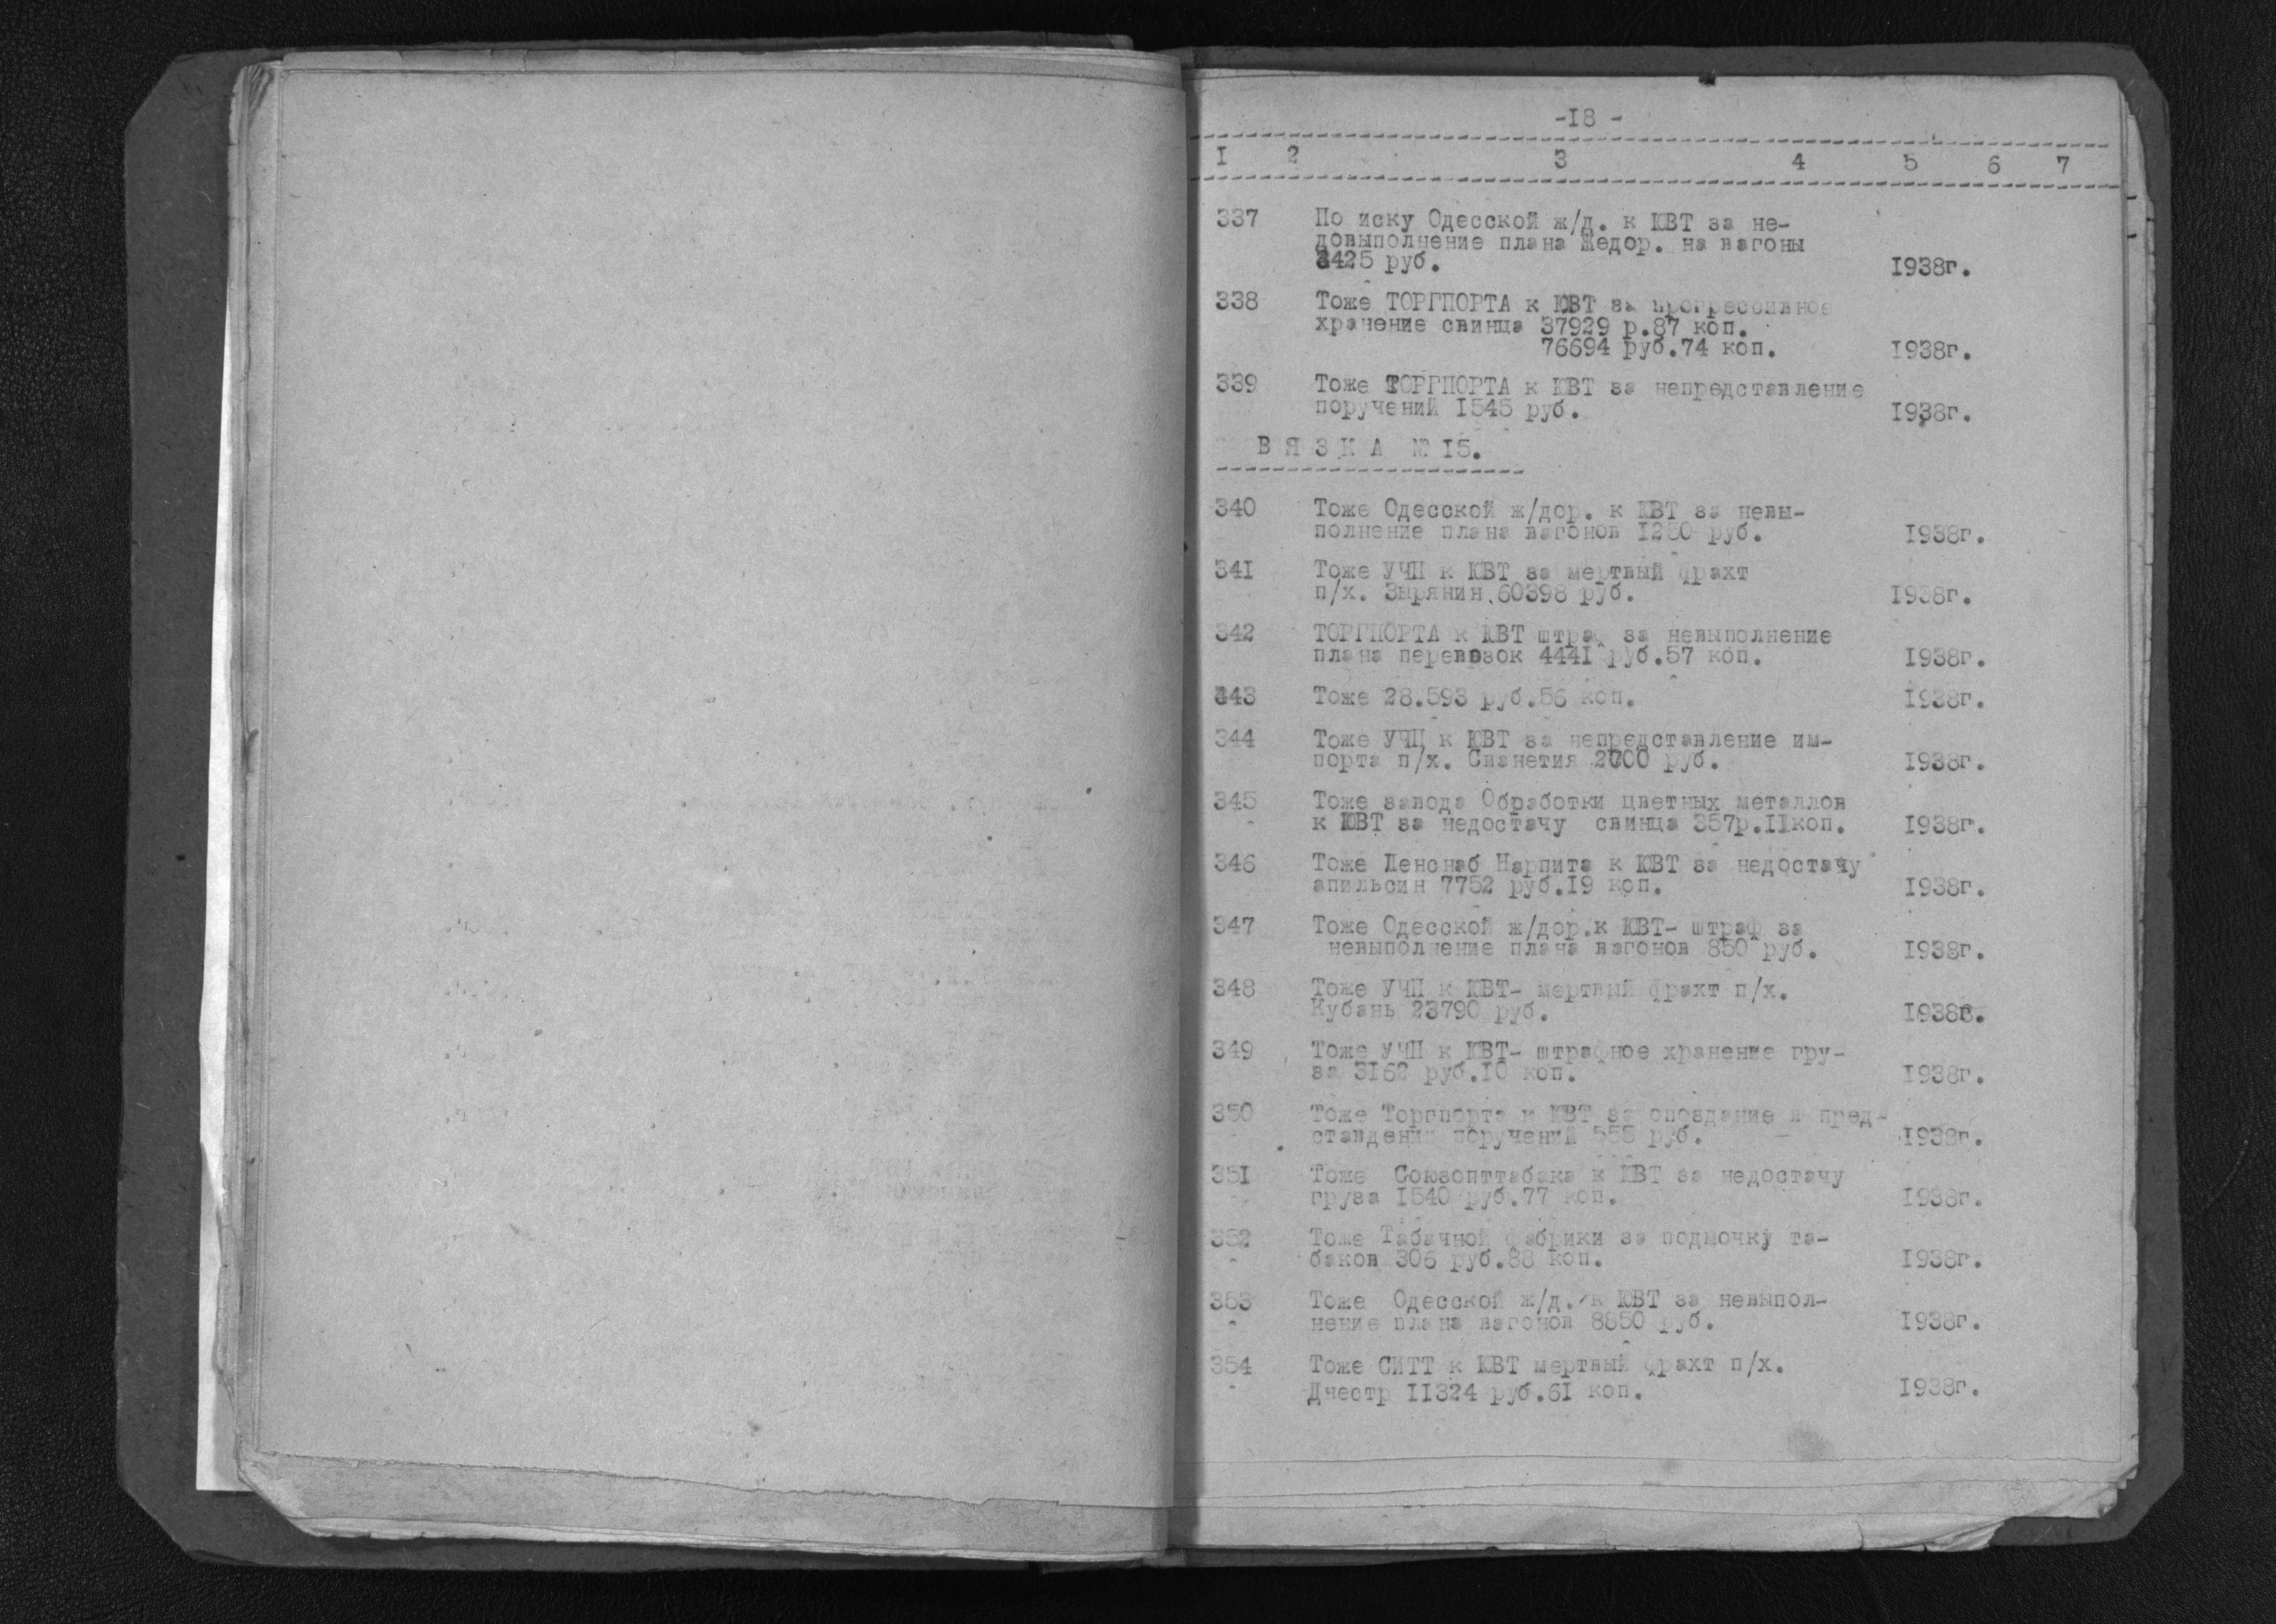 -18 -
1 2 3 4 5 6 7
337 По иску Одесской ж/д. к ЮВТ за не-
довыполнение плана Жедор. на вагоны
3425 руб. 1938г.
338 Тоже ТОРГПОРТА к ЮВТ за прогрессивное
хранение свинца 37929 р.87 коп.
76694 руб.74 коп. 1938г.
339 Тоже ТОРГПОРТА к ЮВТ за непредставление
поручений 1545 руб. 1938г.
В Я З К А № 15.
340 Тоже Одесской ж/дор. к ЮВТ за невы-
полнение плана вагонов 1250 руб. 1938г.
341 Тоже УЧП к ЮВТ за мертвый фрахт
п/х. Зырянин 60398 руб. 1938г.
342 ТОРГПОРТА к ЮВТ штраф за невыполнение
плана перевозок 4441 руб.57 коп. 1938г.
343 Тоже 28.593 руб.56 коп. 1938г.
344 Тоже УЧП к ЮВТ за непредставление им-
порта п/х. Сванетия руб. 1938г.
345 Тоже завода Обработки цветных металлов
к ЮВТ за недостачу свинца 357р.11коп. 1938г.
346 Тоже Ленснаб Нарпита к ЮВТ за недостачу
апильсин 7752 руб.19 коп. 1938г.
347 Тоже Одесской ж/дор.к ЮВТ- штраф за
невыполнение плана вагонов 850 руб. 1938г.
348 Тоже УЧП к ЮВТ- мертвый фрахт п/х.
Кубань 23790 руб. 1938г.
349 Тоже УЧП к ЮВТ- штрафное хранение гру-
за 3162 руб.10 коп. 1938г.
350 Тоже Торгпорта к ЮВТ за опоздание в пред-
ставдении поручений 555 руб. 1938г.
351 Тоже Союзопттабака к ЮВТ за недостачу
груза 1540 руб.77 коп. 1938г.
352 Тоже Табачной фабрики за подмочку та-
баков 306 руб.88 коп. 1938г.
353 Тоже Одесской ж/д. к ЮВТ за невыпол-
нение плана вагонов 8850 руб. 1938г.
354 Тоже СИТТ к ЮВТ мертвый фрахт п/х.
Днестр 11324 руб.61 коп. 1938г.